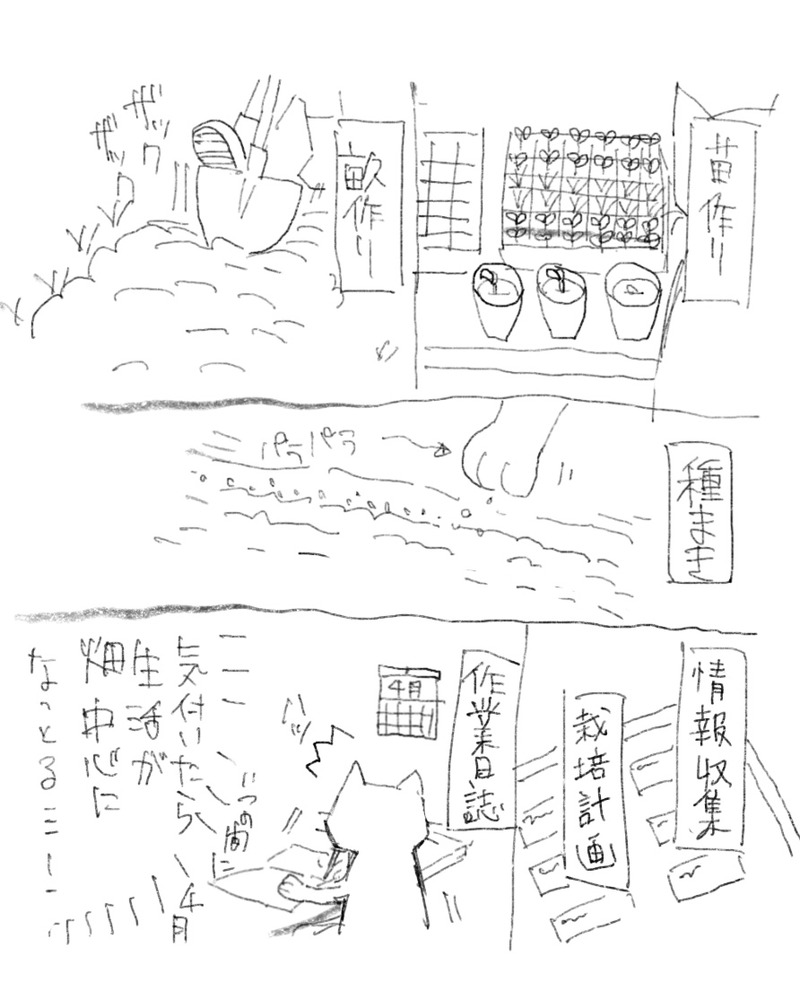 苗作り
畝作り
ザッ
ザッ
種まき
パラパラ
情報収集
栽培計画
作業日誌
4月
ハッ
いつの間に
4月
気付いたら
生活が
畑中心に
なっとる